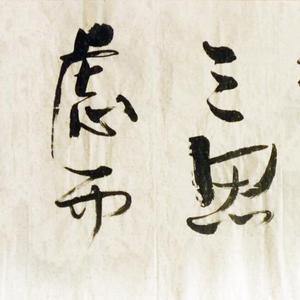 三思
慮而